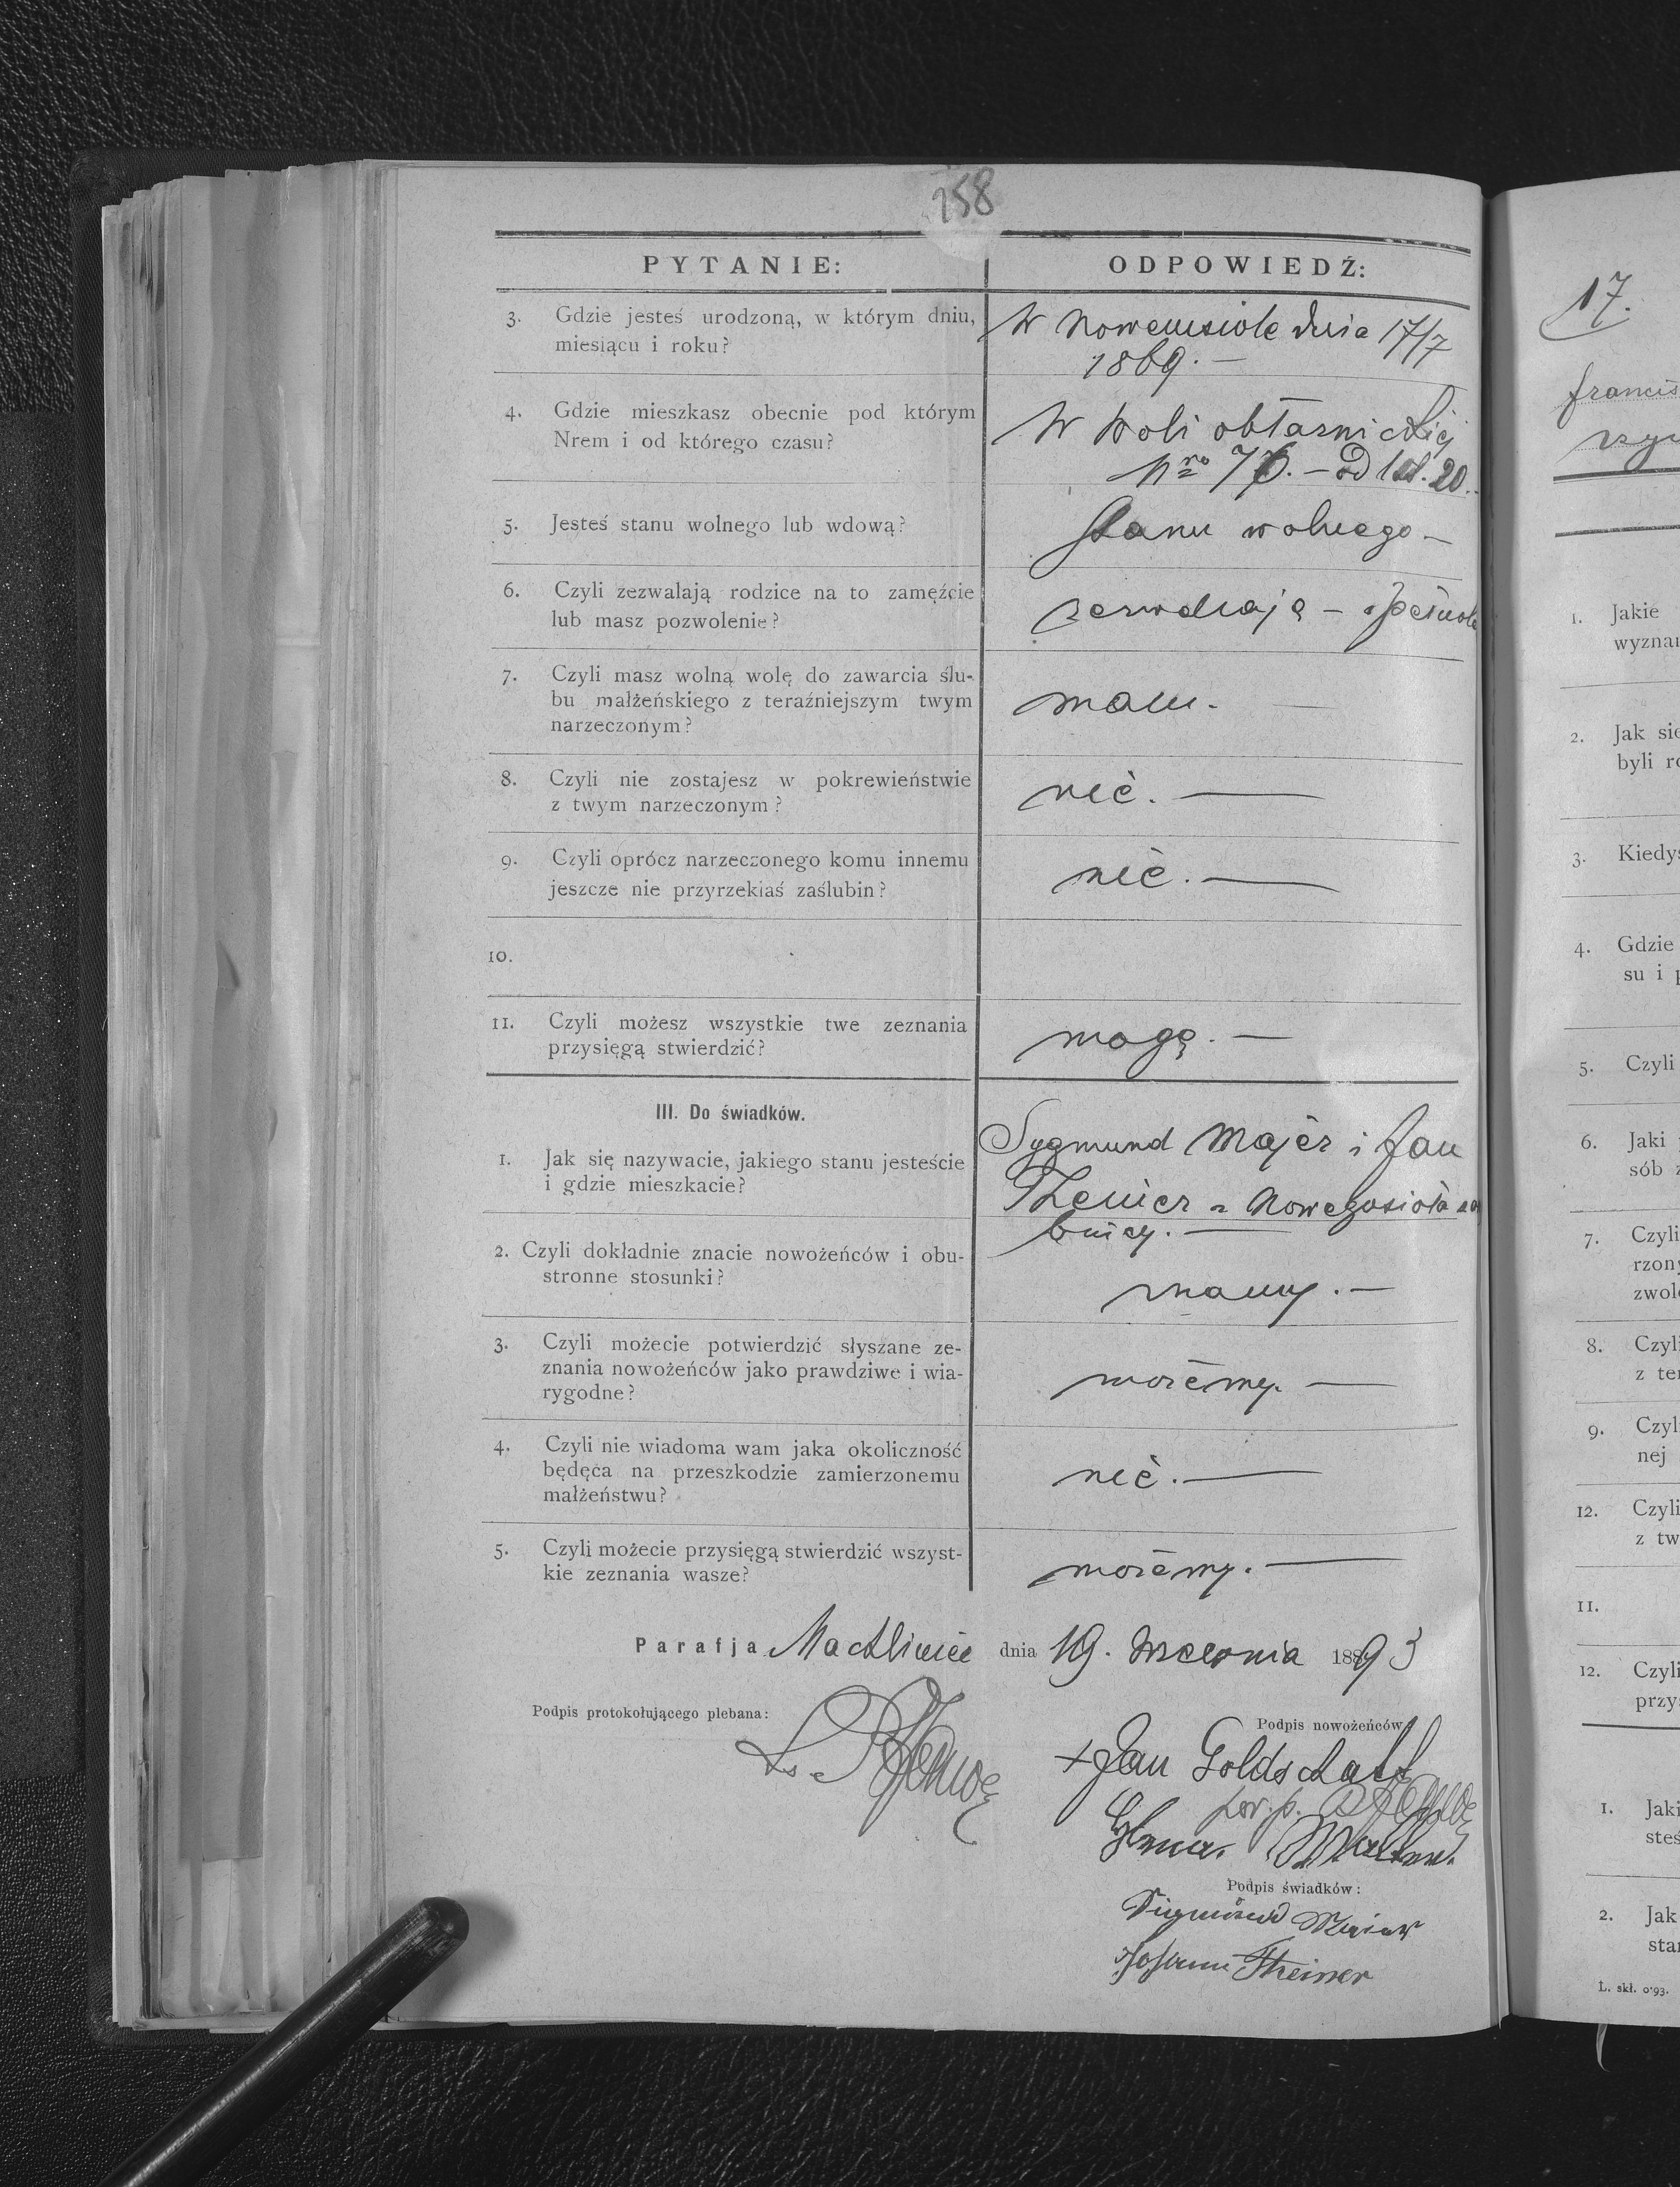 258
PYTANIE:
ODPOWIEDŹ:
3. Gdzie jesteś urodzoną, w którym dniu,
miesiącu i roku?
W Nowemsiole dnia 17/7
1869. —
4. Gdzie mieszkasz obecnie pod którym
Nrem i od którego czasu?
W Woli obłaznickiej
Nro 76. — od lat 20.
5. Jesteś stanu wolnego lub wdową?
Stanu wolnego —
6. Czyli zezwalają rodzice na to zamęźcie
lub masz pozwolenie?
zezwalają —
7. Czyli masz wolną wolę do zawarcia ślu-
bu małżeńskiego z teraźniejszym twym
narzeczonym?
mam. —
8. Czyli nie zostajesz w pokrewieństwie
z twym narzeczonym?
nie. —
9. Czyli oprócz narzeczonego komu innemu
jeszcze nie przyrzekłaś zaślubin?
nie. —
10.
11. Czyli możesz wszystkie twe zeznania
przysięgą stwierdzić?
mogę. —
III. Do świadków.
1. Jak się nazywacie, jakiego stanu jesteście
i gdzie mieszkacie?
Sygmund Majer i Jan
Theiner z Nowegosioła
2. Czyli dokładnie znacie nowożeńców i obu-
stronne stosunki?
znamy. —
3. Czyli możecie potwierdzić słyszane ze-
znania nowożeńców jako prawdziwe i wia-
rygodne?
możemy. —
4. Czyli nie wiadoma wam jaka okoliczność
będęca na przeszkodzie zamierzonemu
małżeństwu?
nie. —
5. Czyli możecie przysięgą stwierdzić wszyst-
kie zeznania wasze?
możemy. —
Parafja Machliniec dnia 19. Września 1893
Podpis protokołującego plebana:
Podpis nowożeńców
+ Jan Goldschatt
Podpis świadków:
Sigmund Maier
Johann Theiner
17.
francis
1. Jakie
wyznan
2. Jak się
byli ro
3. Kiedyś
4. Gdzie
su i p
5. Czyli
6. Jaki
sób z
7. Czyli
rzony
zwol
8. Czyli
z ter
9. Czyl
nej
12. Czyli
z tw
11.
12. Czyli
przy
1. Jaki
steś
2. Jak
star
L. skł. 0·93.